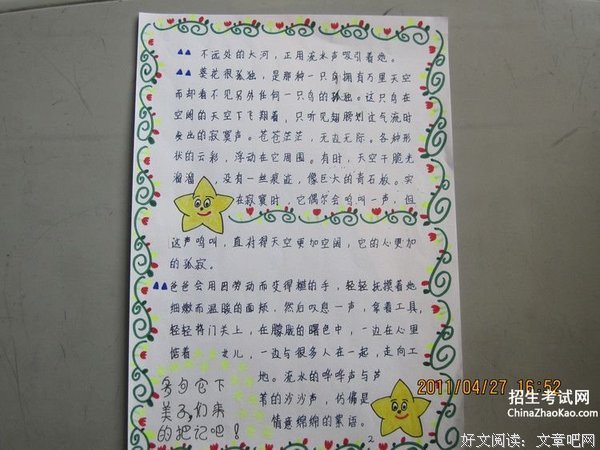 不远处的大河，正用流水声吸引着她。
葵花很孤独，是那种一只鸟拥有万里天空
而却看不见另外任何一只鸟的孤独。这只鸟在
空阔的天空下飞翔着，只听见翅膀划过气流时
发出的寂寞声。苍苍茫茫，无边无际。各种形
状的云彩，浮动在它周围。有时，天空干脆光
溜溜，没有一丝痕迹，像巨大的青石板。实
在寂寞时，它偶尔会鸣叫一声，但
这声鸣叫，直衬得天空更加空阔，它的心更加
的孤寂。
爸爸会用因劳动而变得糙的手，轻轻抚摸着她
细嫩而温暖的面颊，然后叹息一声，拿着工具，
轻轻将门关上，在朦胧的曙色中，一边在心里
惦着女儿，一边与很多人在一起，走向工
地。流水的哗哗声与芦
苇的沙沙声，仿佛是
情意绵绵的絮语。
多句它下
美子，们来
的把记吧！
2
2011/04/27 16:52
招生考试网
ChinaZhaoKao.com
好文阅读：文章吧网